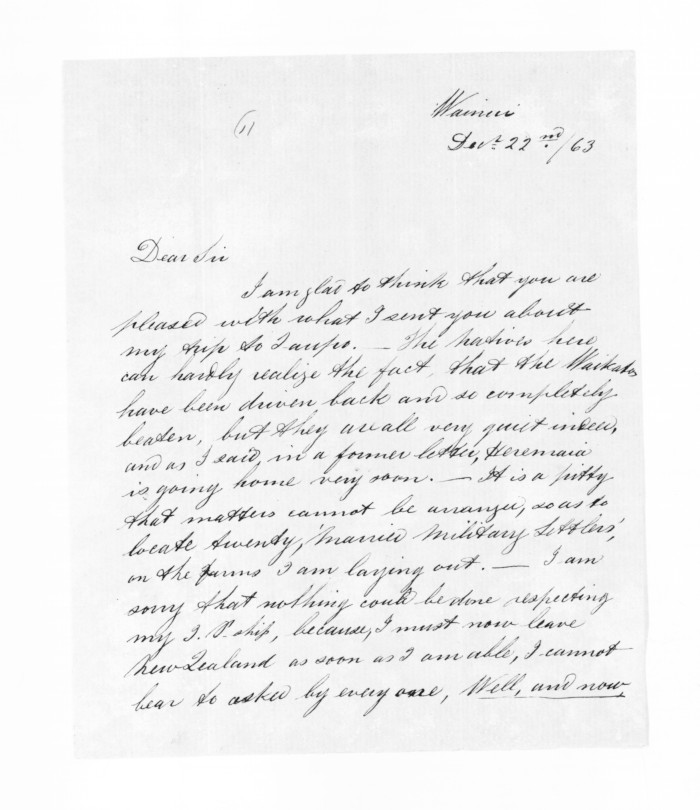 11
Wainui
Decr 22nd/63
Dear Sir
I am glad to think that you are
pleased with what I sent you about
my trip to Taupo. — The Natives here
can hardly realize the fact, that the Waikatos
have been driven back and so completely
beaten, but they are all very quiet indeed,
and as I said, in a former letter, Heremaia
is going home very soon. — It is a pitty
that matters cannot be arranged, so as to
locate twenty, 'Married Military Settlers',
on the farms I am laying out. — I am
sorry that nothing could be done respecting
my J. P. ship, because, I must now leave
New Zealand as soon as I am able, I cannot
bear to asked by every one, Well, and now,